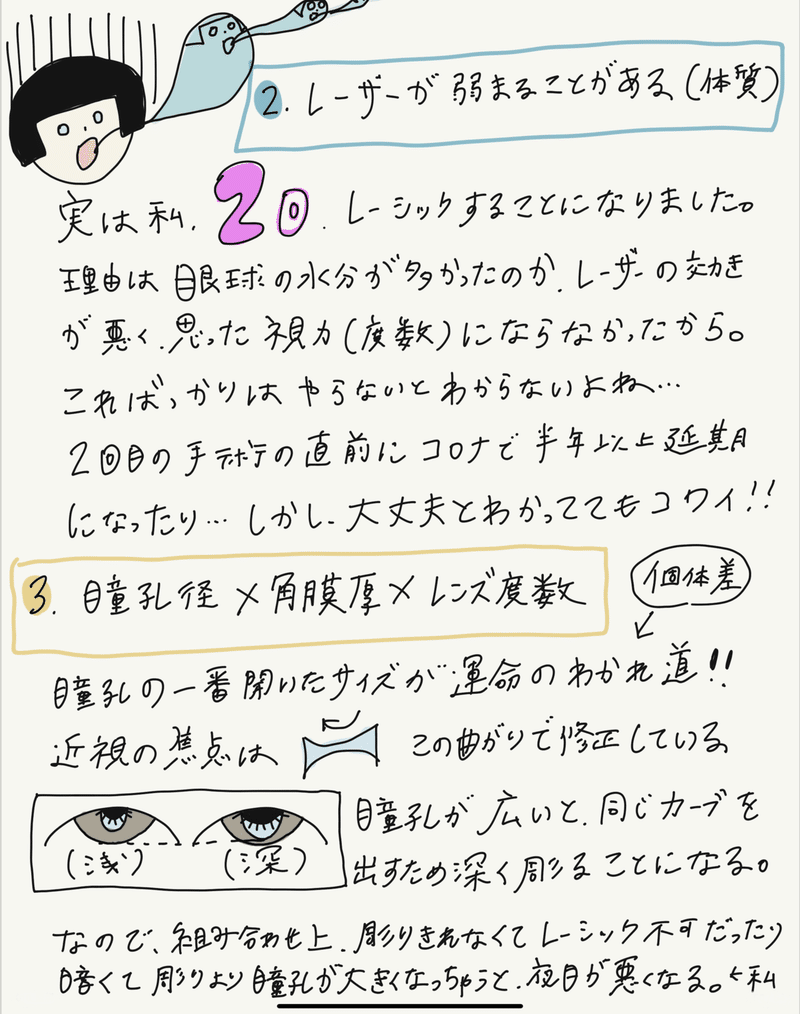 2. レーザーが弱まることがある(体質)
実は私、2回、レーシックすることになりました。
理由は眼球の水分が多かったのか、レーザーの効き
が悪く、思った視力(度数)にならなかったから。
こればっかりはやらないとわからないよね…
2回目の手術の直前にコロナで半年以上延期
になったり… しかし、大丈夫とわかっててもコワイ!!
3. 瞳孔径×角膜厚×レンズ度数
個体差
瞳孔の一番開いたサイズが運命のわかれ道!!
近視の焦点は この曲がりで修正している
(浅) (深)
瞳孔が広いと、同じカーブを
出すため深く彫ることになる。
なので、組み合わせ上、彫りきれなくてレーシック不可だったり
暗くて彫りより瞳孔が大きくなっちゃうと、夜目が悪くなる。←私